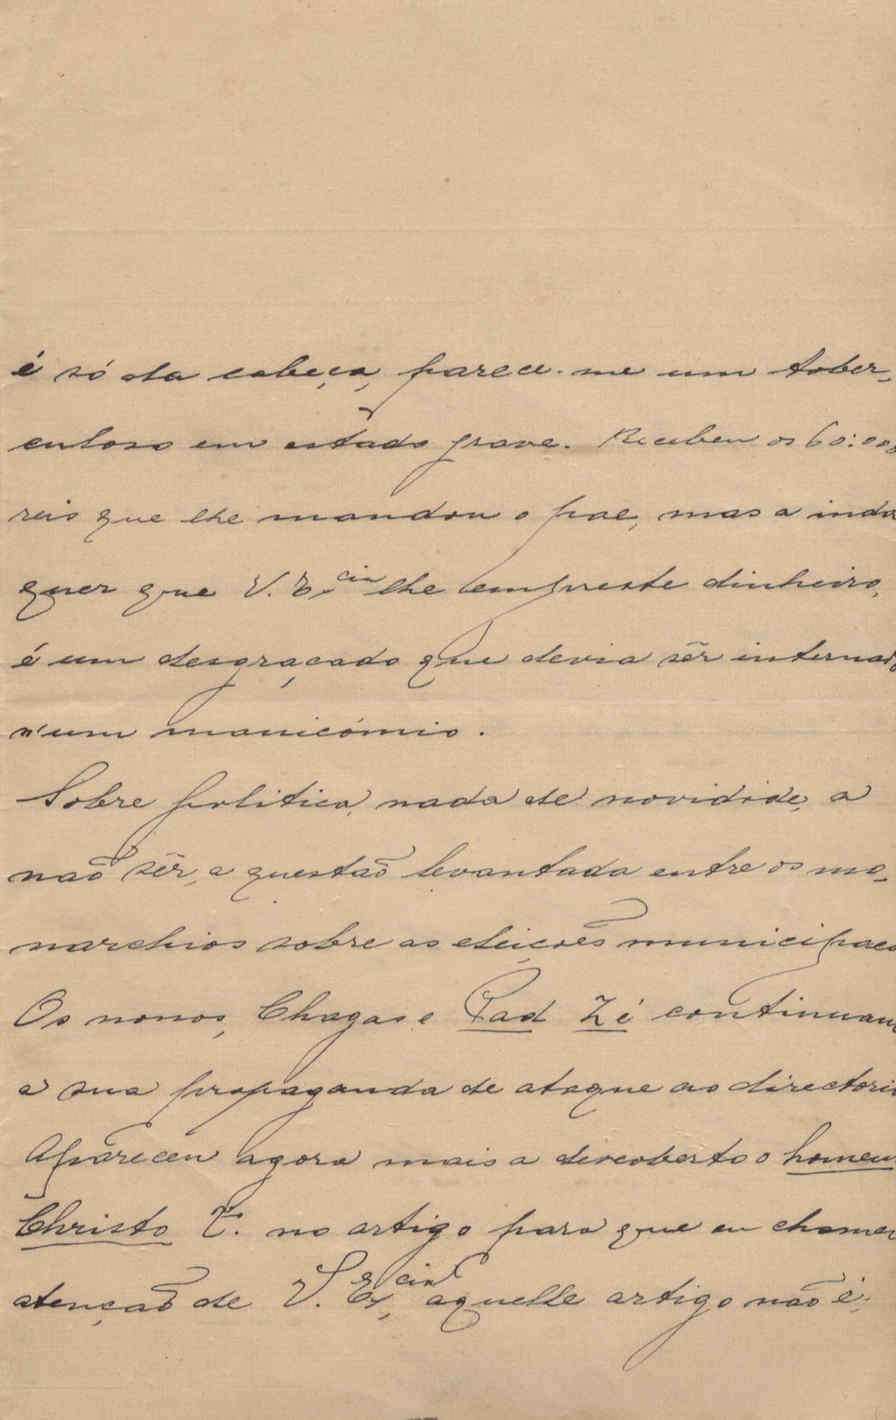 é só da cabeça, parece-me um tober-
culoso em estado grave. Recebeu os 60:000
reis que lhe mandou o pae, mas a inda
quer que V. Ex.cia lhe empreste dinheiro,
é um desgraçado que devia sêr internado
n'um manicómio.
Sobre politica, nada de novidide, a
naõ sêr, a questaõ levantada entre os mo-
narchios sobre as eleiçoẽs municipaes
Os nonos, Chagas e Pad Zé continuam
a sua propaganda de ataque ao directorio
Apareceu agora mais a descoberto o homem
Christo F.º no artigo para que eu chamei
atençaõ de V. Ex.cia, aquelle artigo não é,